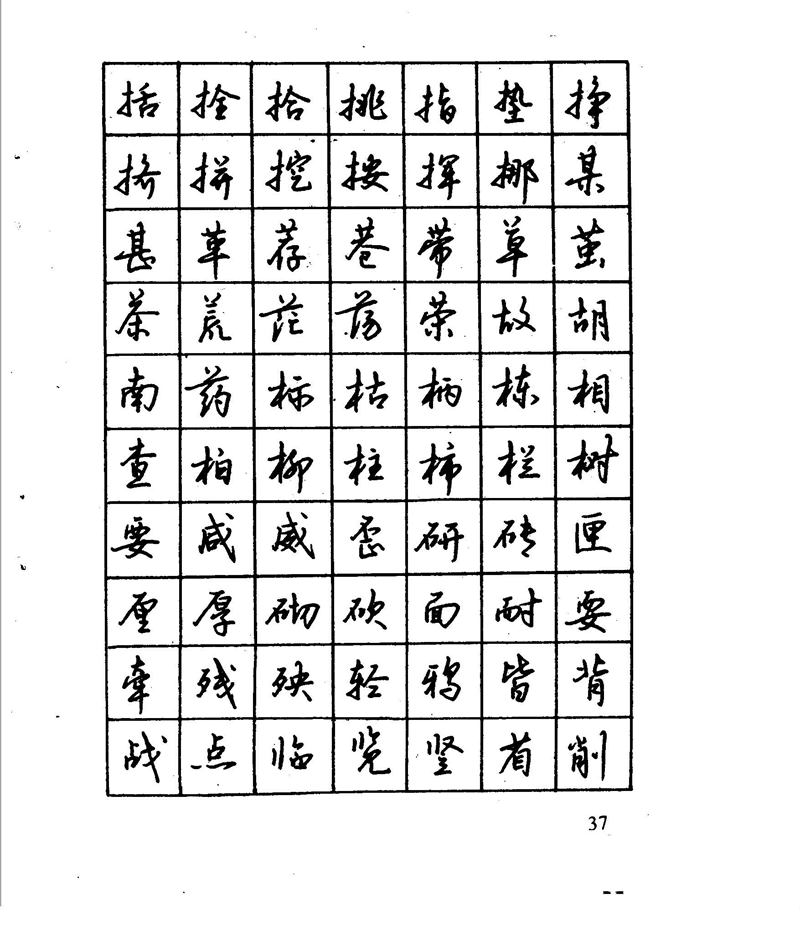 括拴拾挑指垫挣
挤拼挖按挥挪某
甚革荐巷带草茧
茶荒茫荡荣故胡
南药标枯柄栋相
查柏柳柱柿栏树
要咸威歪研砖匣
厘厚砌砍面耐耍
牵残殃轻鸦皆背
战点临览竖省削
37